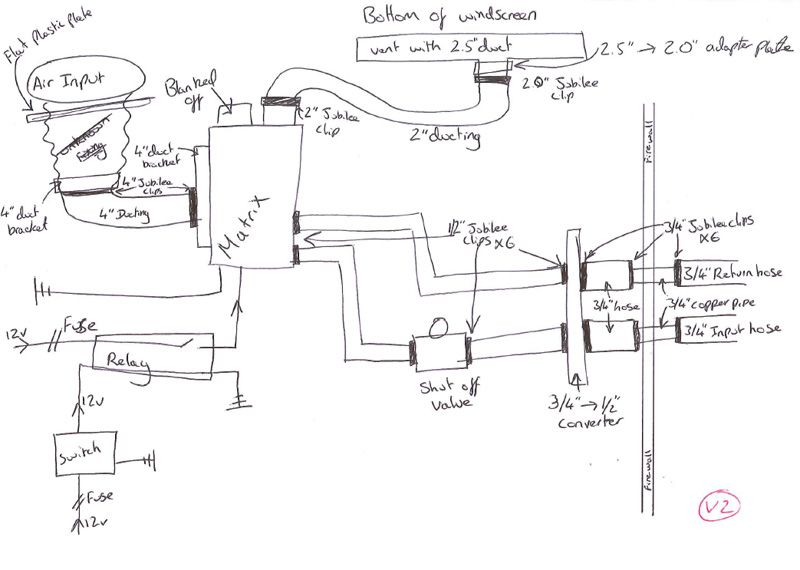 Bottom of windscreen
vent with 2.5" duct
2.5" → 2.0" adapter plate
2.0" Jubilee
clip
Flat plastic plate
Air Input
Blanked
off
2" Jubilee
clip
2" ducting
4" duct
bracket
4" Jubilee
clips
4" duct
bracket
4" Ducting
Matrix
1/2" Jubilee
clips x6
3/4" Jubilee clips
x6
Firewall
3/4" Return hose
3/4" hose
3/4" copper pipe
3/4" Input hose
12v
Fuse
Relay
Shut off
valve
3/4" → 1/2"
converter
12v
Switch
Fuse
12v
Firewall
V2